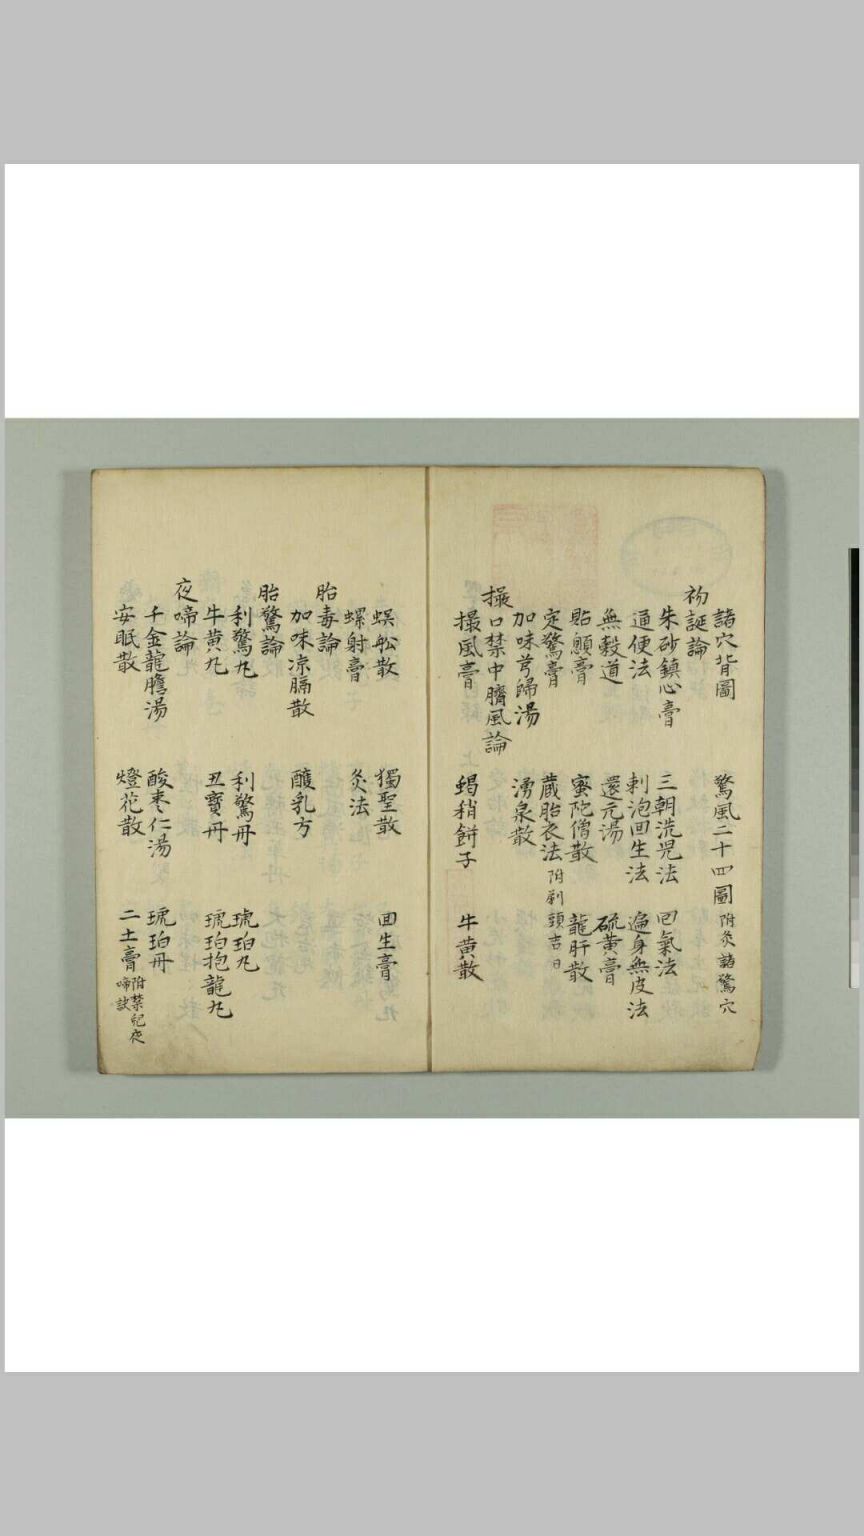 諸穴背圖　驚風二十四圖 附灸諸驚穴
初誕論
朱砂鎮心膏　三朝洗児法　回氣法
通便法　刺泡回生法　遍身無皮法
無穀道　還元湯　硫黄膏
貼顖膏　蜜陀僧散　龍肝散
定驚膏　蔵胎衣法 附剃頭吉日
加味芎歸湯　湧泉散
撮口禁中臍風論
撮風膏　蝎稍餅子　牛黄散
蜈蚣散　獨聖散　回生膏
螺射膏　灸法
胎毒論
加味凉膈散　醮乳方
胎驚論
利驚丸　利驚丹　琥珀丸
牛黄丸　丑寶丹　琥珀抱龍丸
夜啼論
千金龍膽湯　酸枣仁湯　琥珀丹
安眠散　燈花散　二土膏 附禁児夜啼訣